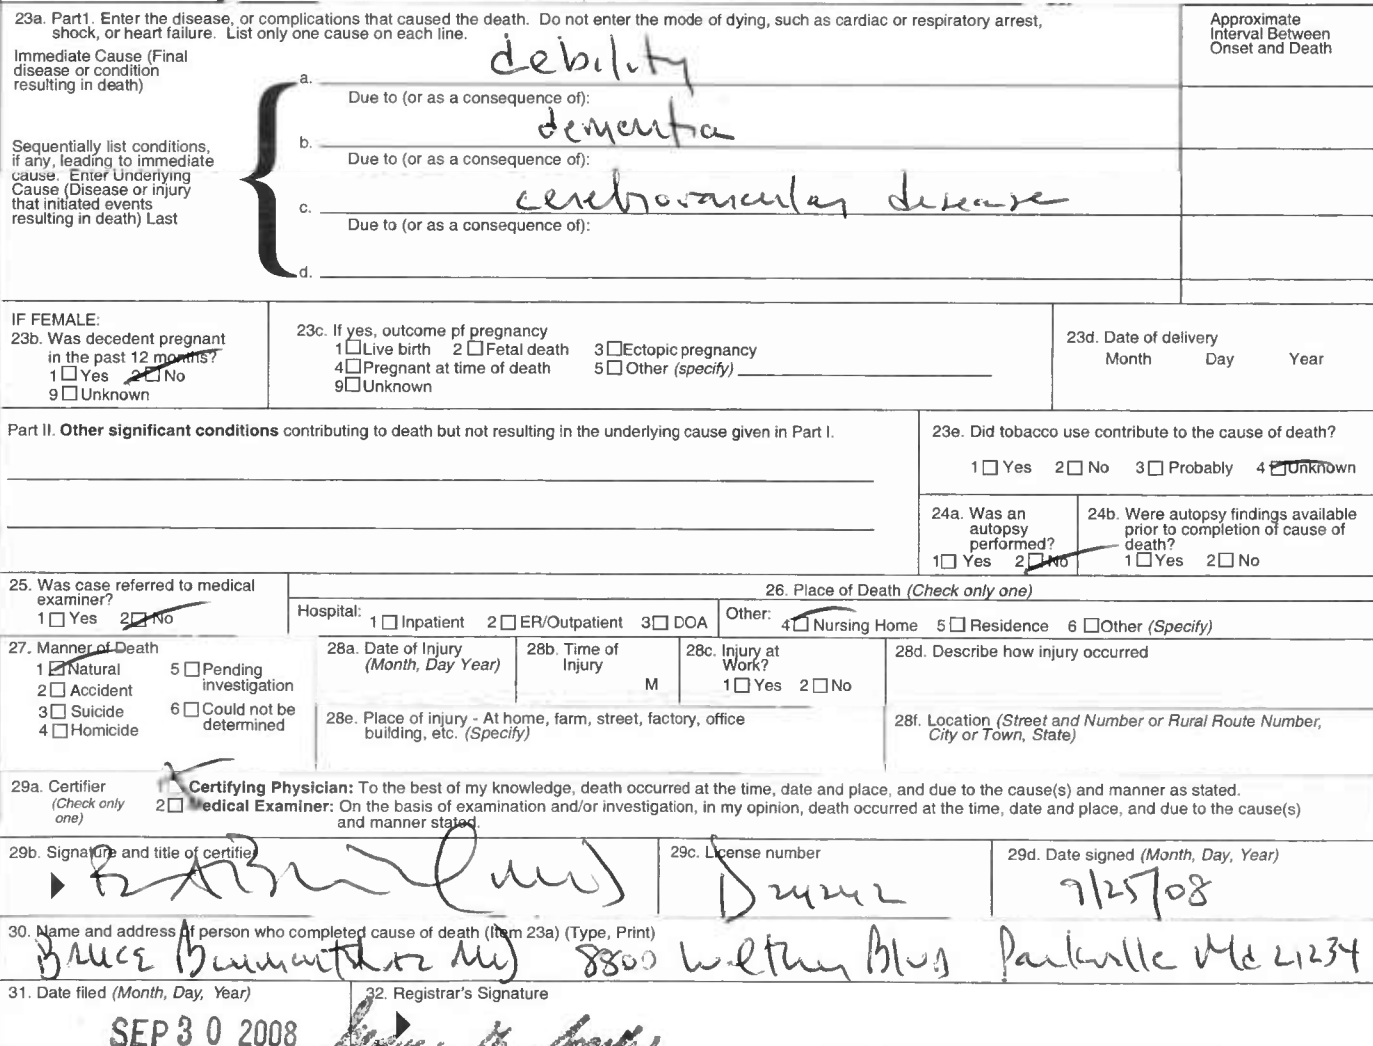 23a. Part1. Enter the disease, or complications that caused the death. Do not enter the mode of dying, such as cardiac or respiratory arrest,
shock, or heart failure. List only one cause on each line.
Approximate
Interval Between
Onset and Death
Immediate Cause (Final
disease or condition
resulting in death)
a. debility
Due to (or as a consequence of):
b. dementia
Due to (or as a consequence of):
Sequentially list conditions,
if any, leading to immediate
cause. Enter Underlying
Cause (Disease or injury
that initiated events
resulting in death) Last
c. cerebrovascular disease
Due to (or as a consequence of):
d.
IF FEMALE:
23b. Was decedent pregnant
in the past 12 months?
1 ☐ Yes 2 ☐ No
9 ☐ Unknown
23c. If yes, outcome pf pregnancy
1 ☐ Live birth 2 ☐ Fetal death 3 ☐ Ectopic pregnancy
4 ☐ Pregnant at time of death 5 ☐ Other (specify)
9 ☐ Unknown
23d. Date of delivery
Month Day Year
Part II. Other significant conditions contributing to death but not resulting in the underlying cause given in Part I.
23e. Did tobacco use contribute to the cause of death?
1 ☐ Yes 2 ☐ No 3 ☐ Probably 4 ☐ Unknown
24a. Was an
autopsy
performed?
1 ☐ Yes 2 ☐ No
24b. Were autopsy findings available
prior to completion of cause of
death?
1 ☐ Yes 2 ☐ No
25. Was case referred to medical
examiner?
1 ☐ Yes 2 ☐ No
26. Place of Death (Check only one)
Hospital: 1 ☐ Inpatient 2 ☐ ER/Outpatient 3 ☐ DOA Other: 4 ☐ Nursing Home 5 ☐ Residence 6 ☐ Other (Specify)
27. Manner of Death
1 ☐ Natural 5 ☐ Pending
investigation
2 ☐ Accident
3 ☐ Suicide 6 ☐ Could not be
determined
4 ☐ Homicide
28a. Date of Injury
(Month, Day Year)
28b. Time of
Injury
M
28c. Injury at
Work?
1 ☐ Yes 2 ☐ No
28d. Describe how injury occurred
28e. Place of injury - At home, farm, street, factory, office
building, etc. (Specify)
28f. Location (Street and Number or Rural Route Number,
City or Town, State)
29a. Certifier
(Check only
one)
1 Certifying Physician: To the best of my knowledge, death occurred at the time, date and place, and due to the cause(s) and manner as stated.
2 ☐ Medical Examiner: On the basis of examination and/or investigation, in my opinion, death occurred at the time, date and place, and due to the cause(s)
and manner stated.
29b. Signature and title of certifier
(MD)
29c. License number
29d. Date signed (Month, Day, Year)
9/25/08
30. Name and address of person who completed cause of death (Item 23a) (Type, Print)
Bruce MD 8800 Blvd Parkville Md 21234
31. Date filed (Month, Day, Year)
SEP 30 2008
32. Registrar's Signature